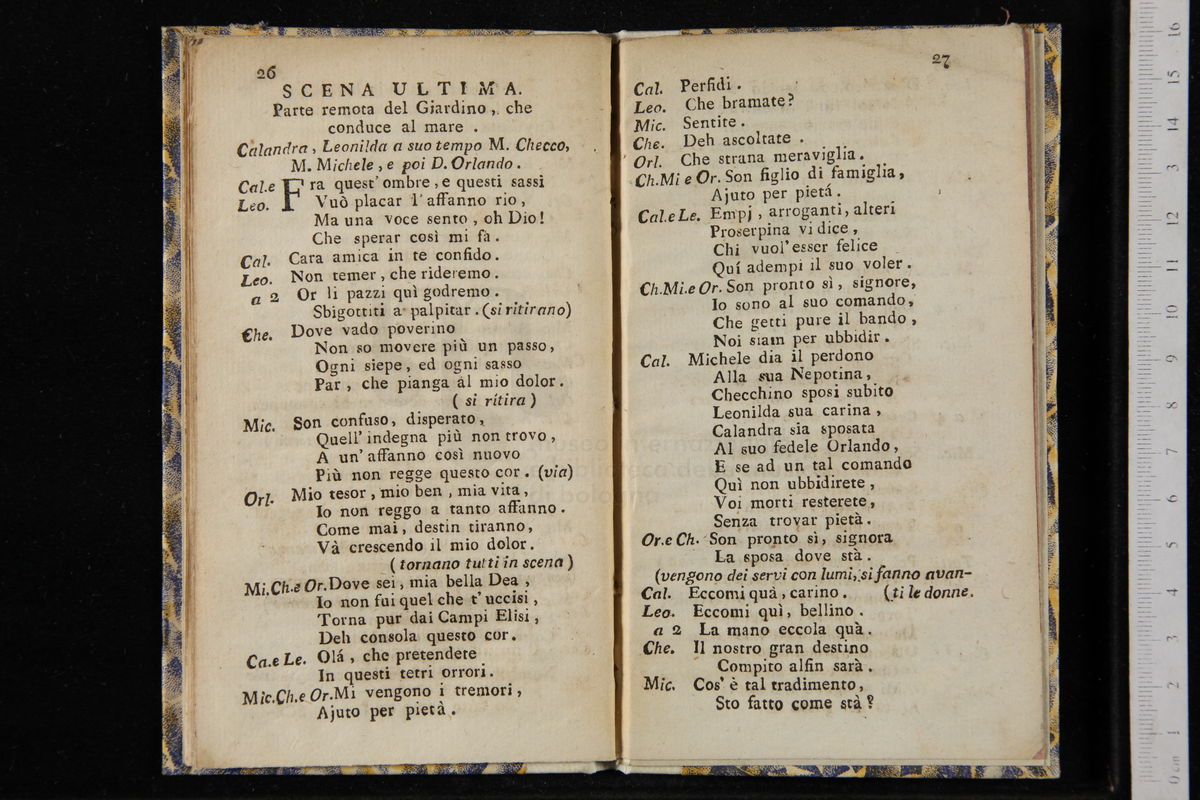 26
SCENA ULTIMA.
Parte remota del Giardino, che
conduce al mare .
Calandra , Leonilda a suo tempo M. Checco,
M. Michele , e poi D. Orlando .
Cal. e Fra quest' ombre , e questi sassi
Leo. Vuò placar l' affanno rio ,
Ma una voce sento , oh Dio!
Che sperar così mi fa .
Cal. Cara amica in te confido .
Leo. Non temer , che rideremo .
a 2 Or li pazzi quì godremo .
Sbigottiti a palpitar . (si ritirano)
Che. Dove vado poverino
Non so movere più un passo ,
Ogni siepe , ed ogni sasso
Par , che pianga al mio dolor .
( si ritira )
Mic. Son confuso, disperato ,
Quell' indegna più non trovo ,
A un' affanno così nuovo
Più non regge questo cor . (via)
Orl. Mio tesor , mio ben , mia vita ,
Io non reggo a tanto affanno .
Come mai , destin tiranno ,
Và crescendo il mio dolor .
( tornano tutti in scena )
Mi.Ch.e Or. Dove sei , mia bella Dea ,
Io non fui quel che t' uccisi ,
Torna pur dai Campi Elisi ,
Deh consola questo cor .
Ca.e Le. Olá , che pretendete
In questi tetri orrori .
Mic.Ch.e Or. Mi vengono i tremori ,
Ajuto per pietà .
27
Cal. Perfidi .
Leo. Che bramate?
Mic. Sentite .
Che. Deh ascoltate .
Orl. Che strana meraviglia .
Ch.Mi e Or. Son figlio di famiglia ,
Ajuto per pietá .
Cal.e Le. Empj , arroganti , alteri
Proserpina vi dice ,
Chi vuol' esser felice
Quí adempi il suo voler .
Ch.Mi.e Or. Son pronto sì , signore,
Io sono al suo comando,
Che getti pure il bando ,
Noi siam per ubbidir .
Cal. Michele dia il perdono
Alla sua Nepotina ,
Checchino sposi subito
Leonilda sua carina ,
Calandra sia sposata
Al suo fedele Orlando ,
E se ad un tal comando
Quì non ubbidirete ,
Voi morti resterete ,
Senza trovar pietà .
Or.e Ch. Son pronto sì , signora
La sposa dove stà .
(vengono dei servi con lumi, si fanno avan-
Cal. Eccomi quà , carino . (ti le donne.
Leo. Eccomi quì , bellino .
a 2 La mano eccola quà .
Che. Il nostro gran destino
Compito alfin sarà .
Mic. Cos' è tal tradimento ,
Sto fatto come stà ?